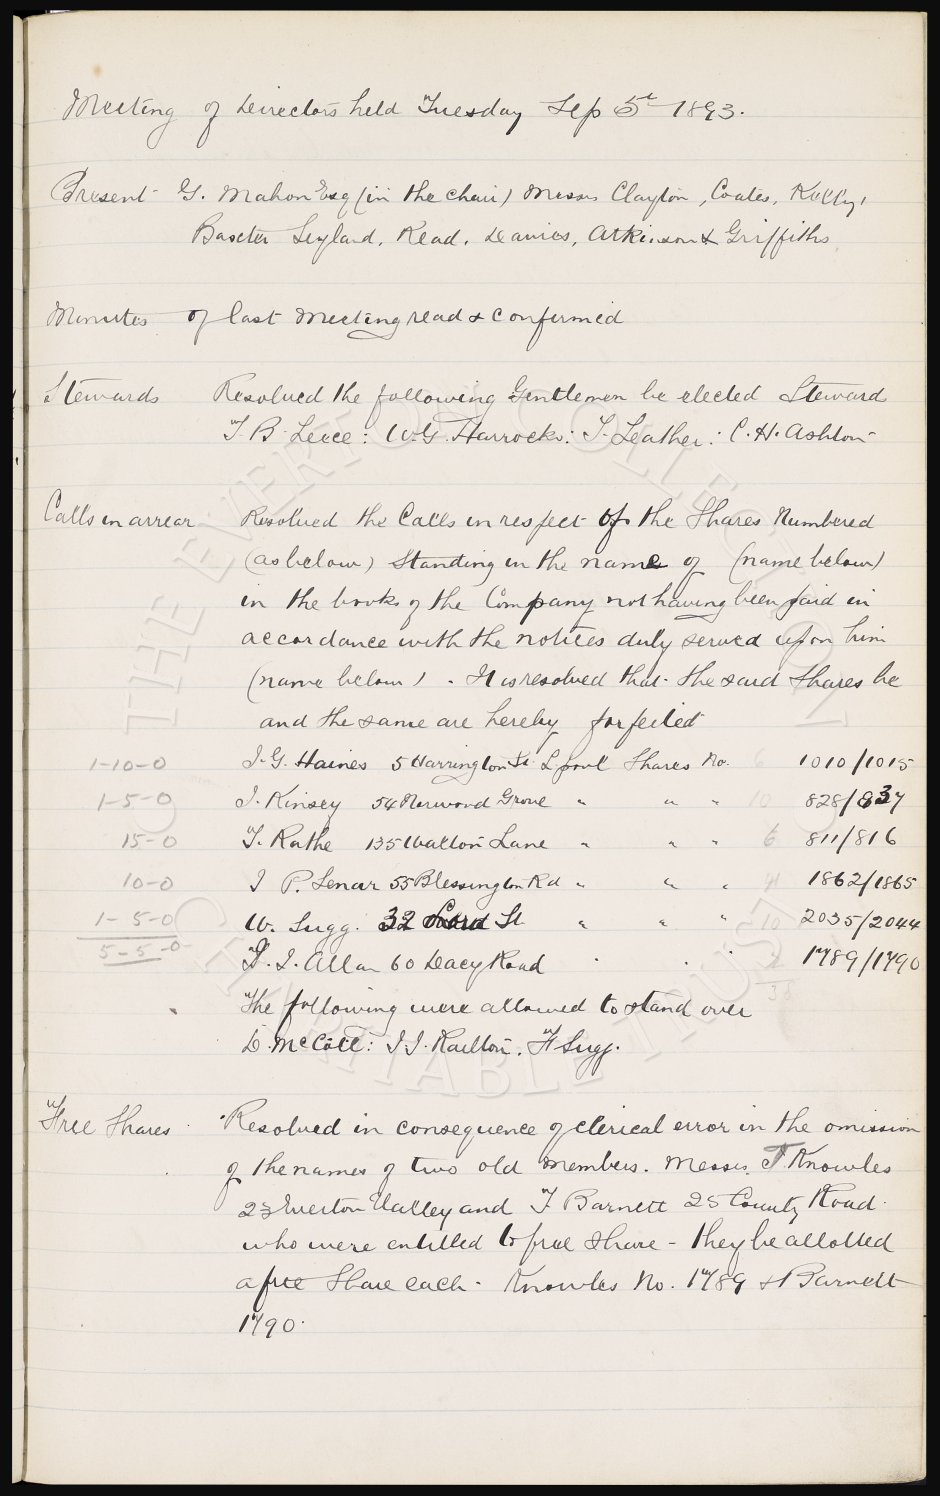 Meeting of Directors held Tuesday Sep 5th 1893.
Present G. Mahon Esq (in the chair) Messrs Clayton, Coates, Kelly,
Baxter Leyland, Read, Davies, Atkinson & Griffiths
Minutes of last Meeting read & confirmed
Stewards Resolved the following Gentlemen be elected Steward
T. B. Leece: W.G. Harrocks: T. Leather: C. H. Ashton
Calls in arrear Resolved the Calls in respect of the Shares Numbered
(as below) Standing in the name of (name below)
in the books of the Company not having been paid in
accordance with the notices duly served upon him
(name below). It is resolved that the said Shares be
and the same are hereby forfeited
1-10-0 J. G. Haines 5 Harrington St. Lpool Shares No. 6 1010/1015
1-5-0 J. Kinsey 54 Norwood Grove " " " 10 828/837
15-0 T. Rathe 135 Walton Lane " " " 6 811/816
10-0 J P. Lenar 55 Blessington Rd " " " 4 1862/1865
1-5-0 W. Sugg. 32 Lord St " " " 10 2035/2044
5-5-0
T. J. Allan 60 Dacy Road " " " 2 1789/1790
38
The following were allowed to stand over
D. McCall: J J. Railton. F Sugg.
Free Shares Resolved in consequence of clerical error in the omission
of the names of two old Members. Messrs. T. Knowles
23 Everton Valley and T Barnett 25 County Road
who were entitled to free share - they be allotted
a free Share each - Knowles No. 1789 & Barnett
1790.
THE EVERTON COLLECTION
CHARITABLE TRUST